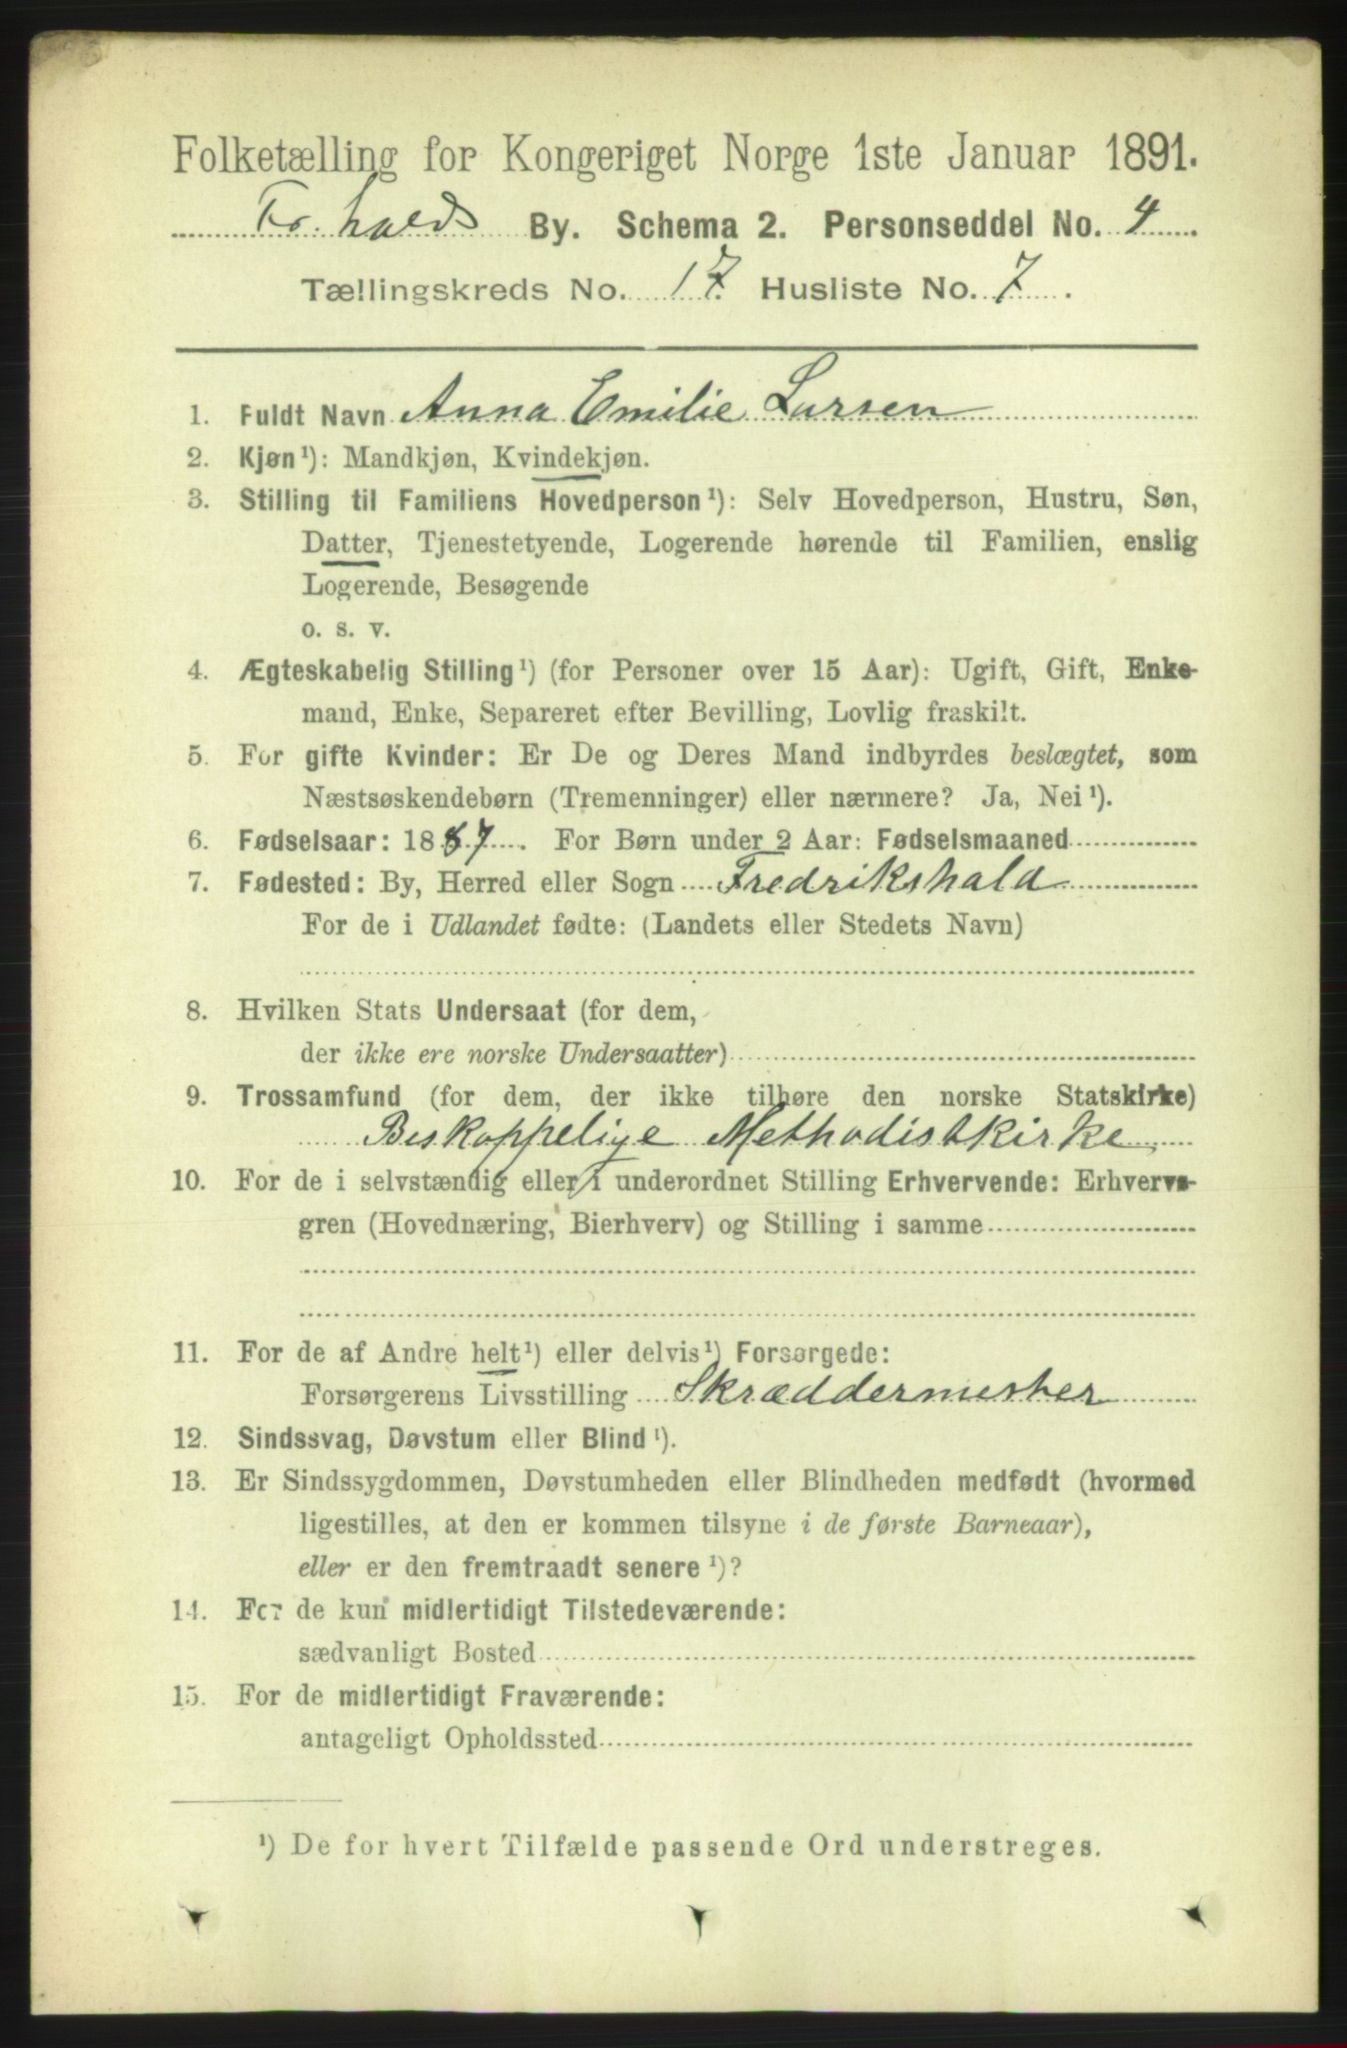 Folketælling for Kongeriget Norge 1ste Januar 1891.
Fr.halds By. Schema 2. Personseddel No. 4
Tællingskreds No. 17 Husliste No. 7.
1. Fuldt Navn Anna Emilie Larsen
2. Kjøn¹): Mandkjøn, Kvindekjøn.
3. Stilling til Familiens Hovedperson¹): Selv Hovedperson, Hustru, Søn,
Datter, Tjenestetyende, Logerende hørende til Familien, enslig
Logerende, Besøgende
o. s. v.
4. Ægteskabelig Stilling¹) (for Personer over 15 Aar): Ugift, Gift, Enke-
mand, Enke, Separeret efter Bevilling, Lovlig fraskilt.
5. For gifte Kvinder: Er De og Deres Mand indbyrdes beslægtet, som
Næstsøskendebørn (Tremenninger) eller nærmere? Ja, Nei¹).
6. Fødselsaar: 1887. For Børn under 2 Aar: Fødselsmaaned
7. Fødested: By, Herred eller Sogn Fredrikshald
For de i Udlandet fødte: (Landets eller Stedets Navn)
8. Hvilken Stats Undersaat (for dem,
der ikke ere norske Undersaatter)
9. Trossamfund (for dem, der ikke tilhøre den norske Statskirke)
Biskoppelige Methodistkirke
10. For de i selvstændig eller i underordnet Stilling Erhvervende: Erhvervs-
gren (Hovednæring, Bierhverv) og Stilling i samme
11. For de af Andre helt¹) eller delvis¹) Forsørgede:
Forsørgerens Livsstilling Skræddermester
12. Sindssvag, Døvstum eller Blind¹).
13. Er Sindssygdommen, Døvstumheden eller Blindheden medfødt (hvormed
ligestilles, at den er kommen tilsyne i de første Barneaar),
eller er den fremtraadt senere¹)?
14. For de kun midlertidigt Tilstedeværende:
sædvanligt Bosted
15. For de midlertidigt Fraværende:
antageligt Opholdssted
¹) De for hvert Tilfælde passende Ord understreges.